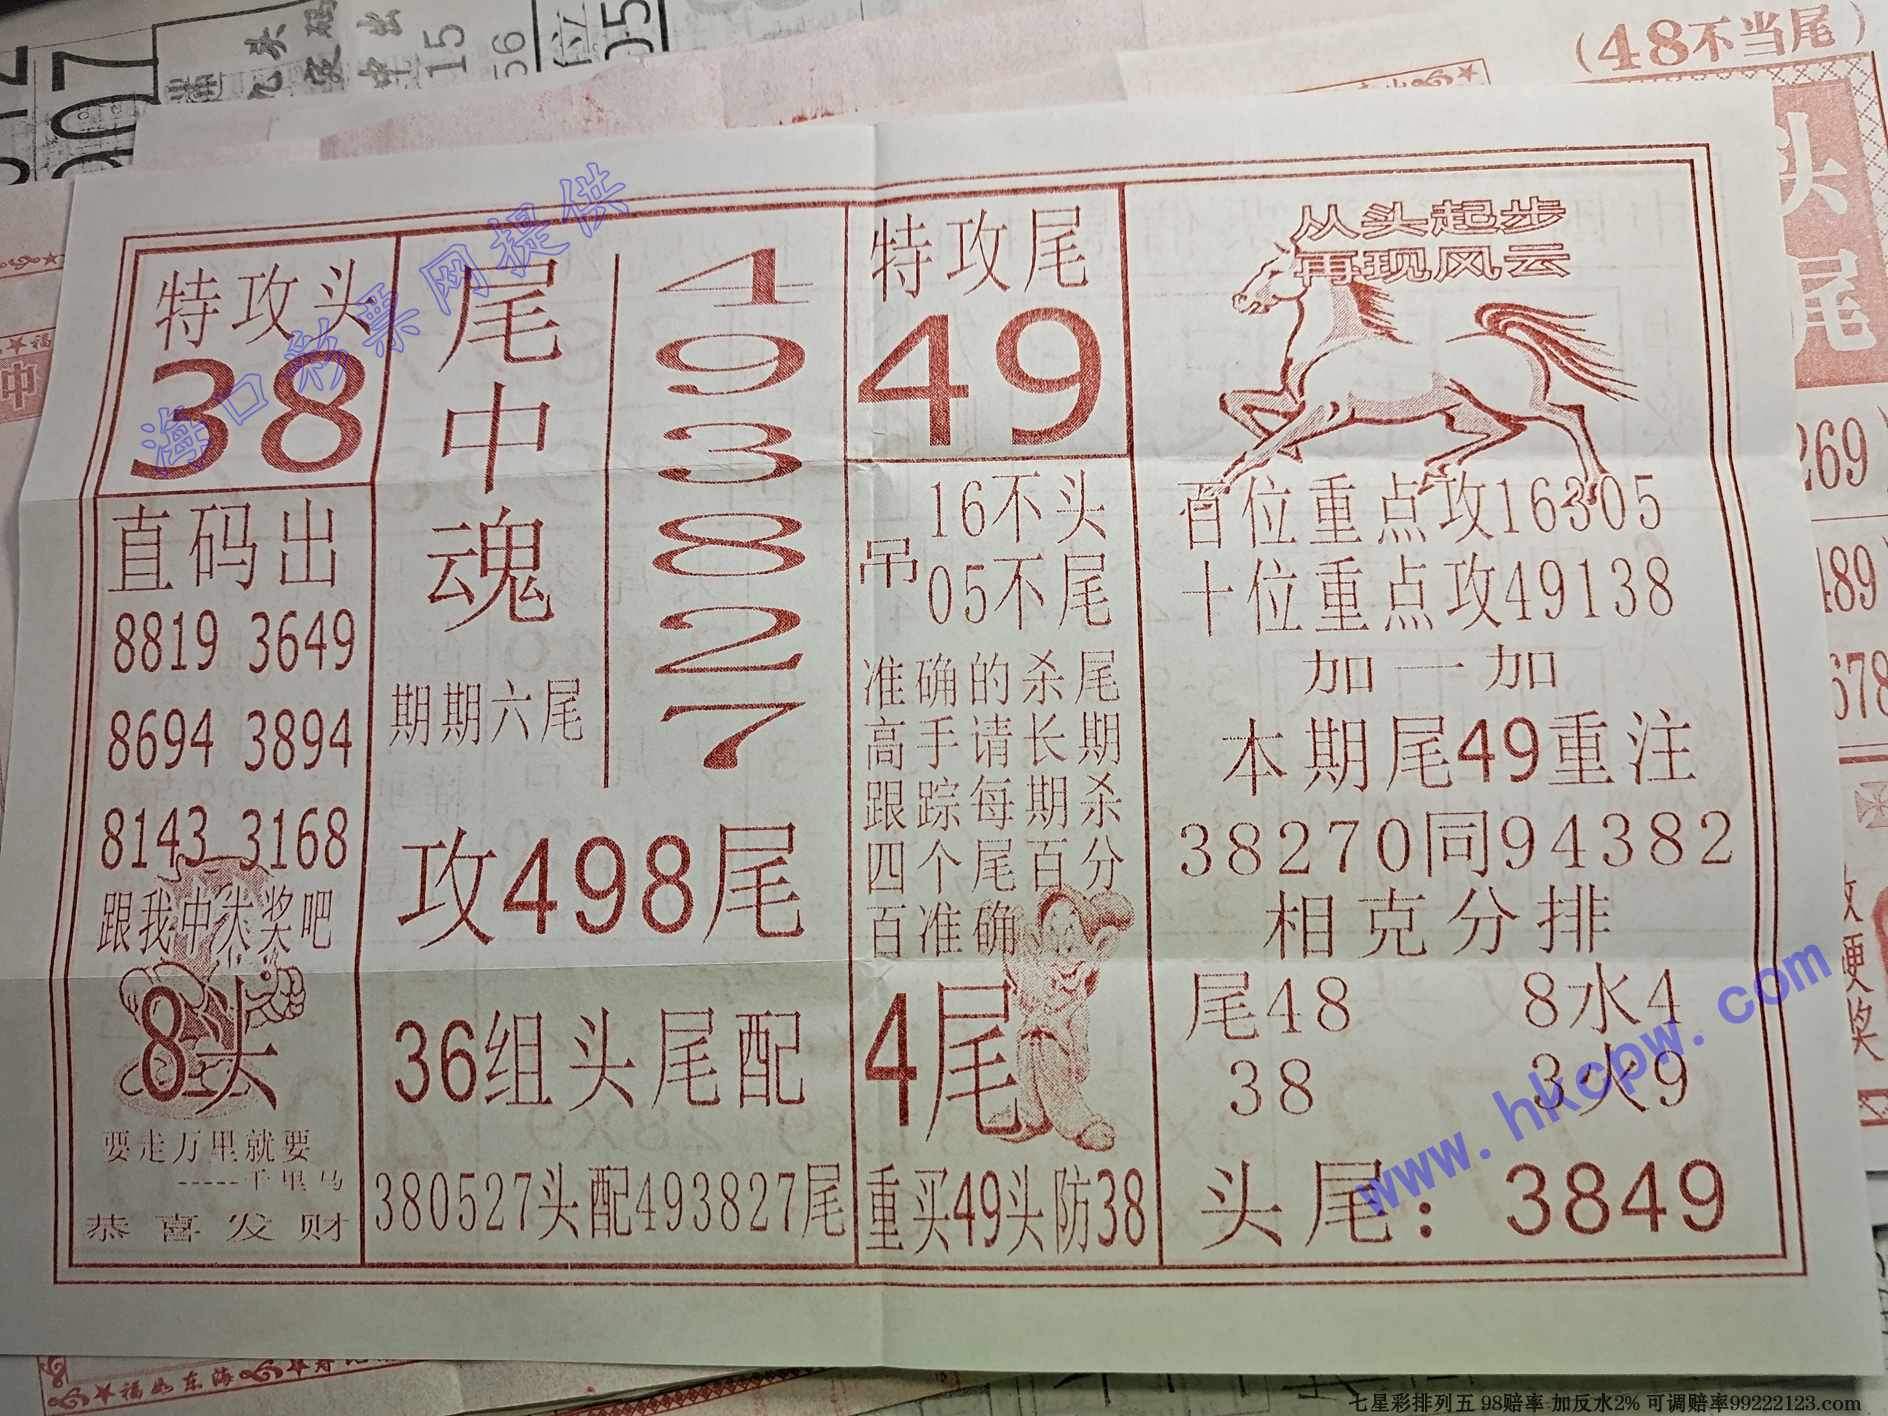 (48不当尾)
头
尾
269
489
678
海口彩票网提供
特攻头
38
直码出
8819 3649
8694 3894
8143 3168
跟我中大奖吧
8头
要走万里就要
-----千里马
恭喜发财
尾中魂
期期六尾
4
9
3
8
2
7
攻498尾
36组头尾配
380527头配493827尾
特攻尾
49
吊
16不头
05不尾
准确的杀尾
高手请长期
跟踪每期杀
四个尾百分
百准确
4尾
重买49头防38
从头起步
再现风云
百位重点攻16305
十位重点攻49138
加一加
本期尾49重注
38270同94382
相克分排
尾48 8水4
38 3火9
头尾:3849
www.hkcpw.com
福如东海
七星彩排列五 98赔率 加反水2% 可调赔率99222123.com